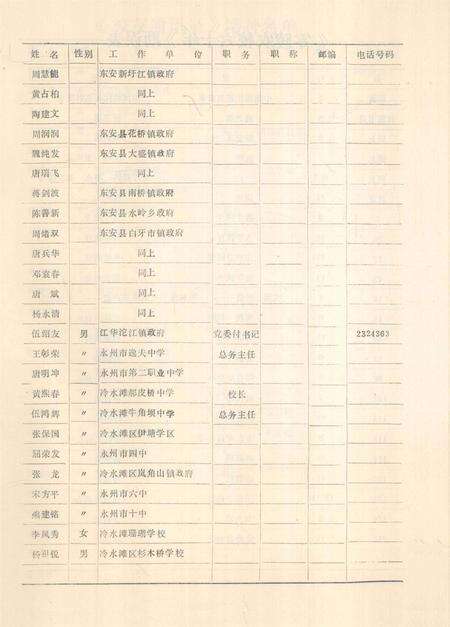 姓名 性别 工作单位 职务 职称 邮编 电话号码
周慧能 东安新圩江镇政府
黄占柏 同上
陶建文 同上
周润润 东安县花桥镇政府
魏纯发 东安县大盛镇政府
唐瑞飞 同上
蒋剑波 东安县南桥镇政府
陈善新 东安县水岭乡政府
周增双 东安县白牙市镇政府
唐兵华 同上
邓袁春 同上
唐斌 同上
杨永清 同上
伍绍友 男 江华沱江镇政府 党委付书记 2324363
王彰荣 〃 永州市逸夫中学 总务主任
唐明坤 〃 永州市第二职业中学
黄照春 〃 冷水滩郝皮桥中学 校长
伍鸿辉 〃 冷水滩牛角坝中学 总务主任
张保国 〃 冷水滩区伊塘学区
屈荣发 〃 永州市四中
张龙 〃 冷水滩区岚角山镇政府
宋方平 〃 永州市六中
建铭 〃 永州市十中
李凤秀 女 冷水滩珊瑚学校
杨 男 冷水滩区杉木桥学校